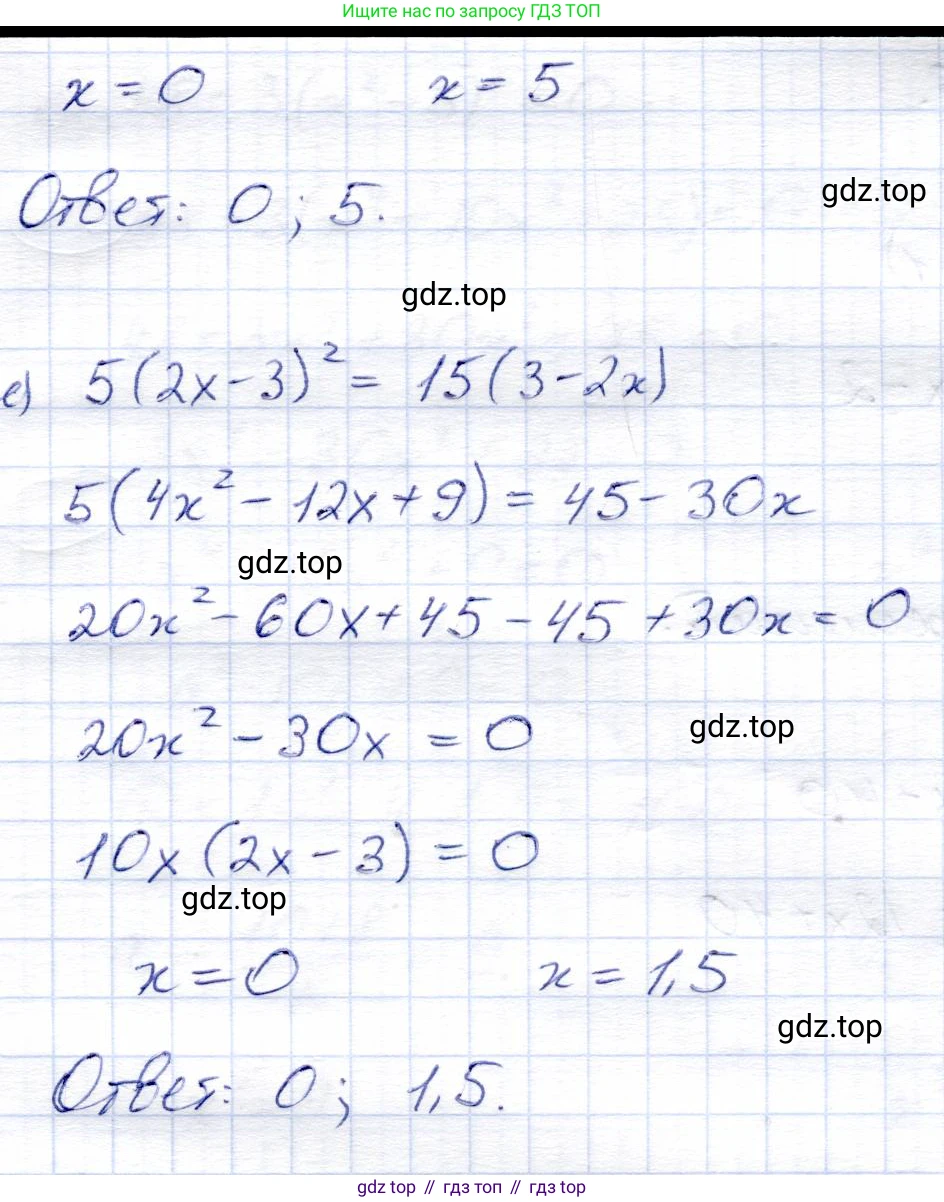 Ищите нас по запросу ГДЗ ТОП
x = 0 x = 5
Ответ: 0 ; 5.
gdz.top
gdz.top
е) 5(2x - 3)² = 15(3 - 2x)
5(4x² - 12x + 9) = 45 - 30x
gdz.top
20x² - 60x + 45 - 45 + 30x = 0
20x² - 30x = 0
gdz.top
10x (2x - 3) = 0
gdz.top
x = 0 x = 1,5
gdz.top
Ответ: 0 ; 1,5.
gdz top // гдз топ // гдз top